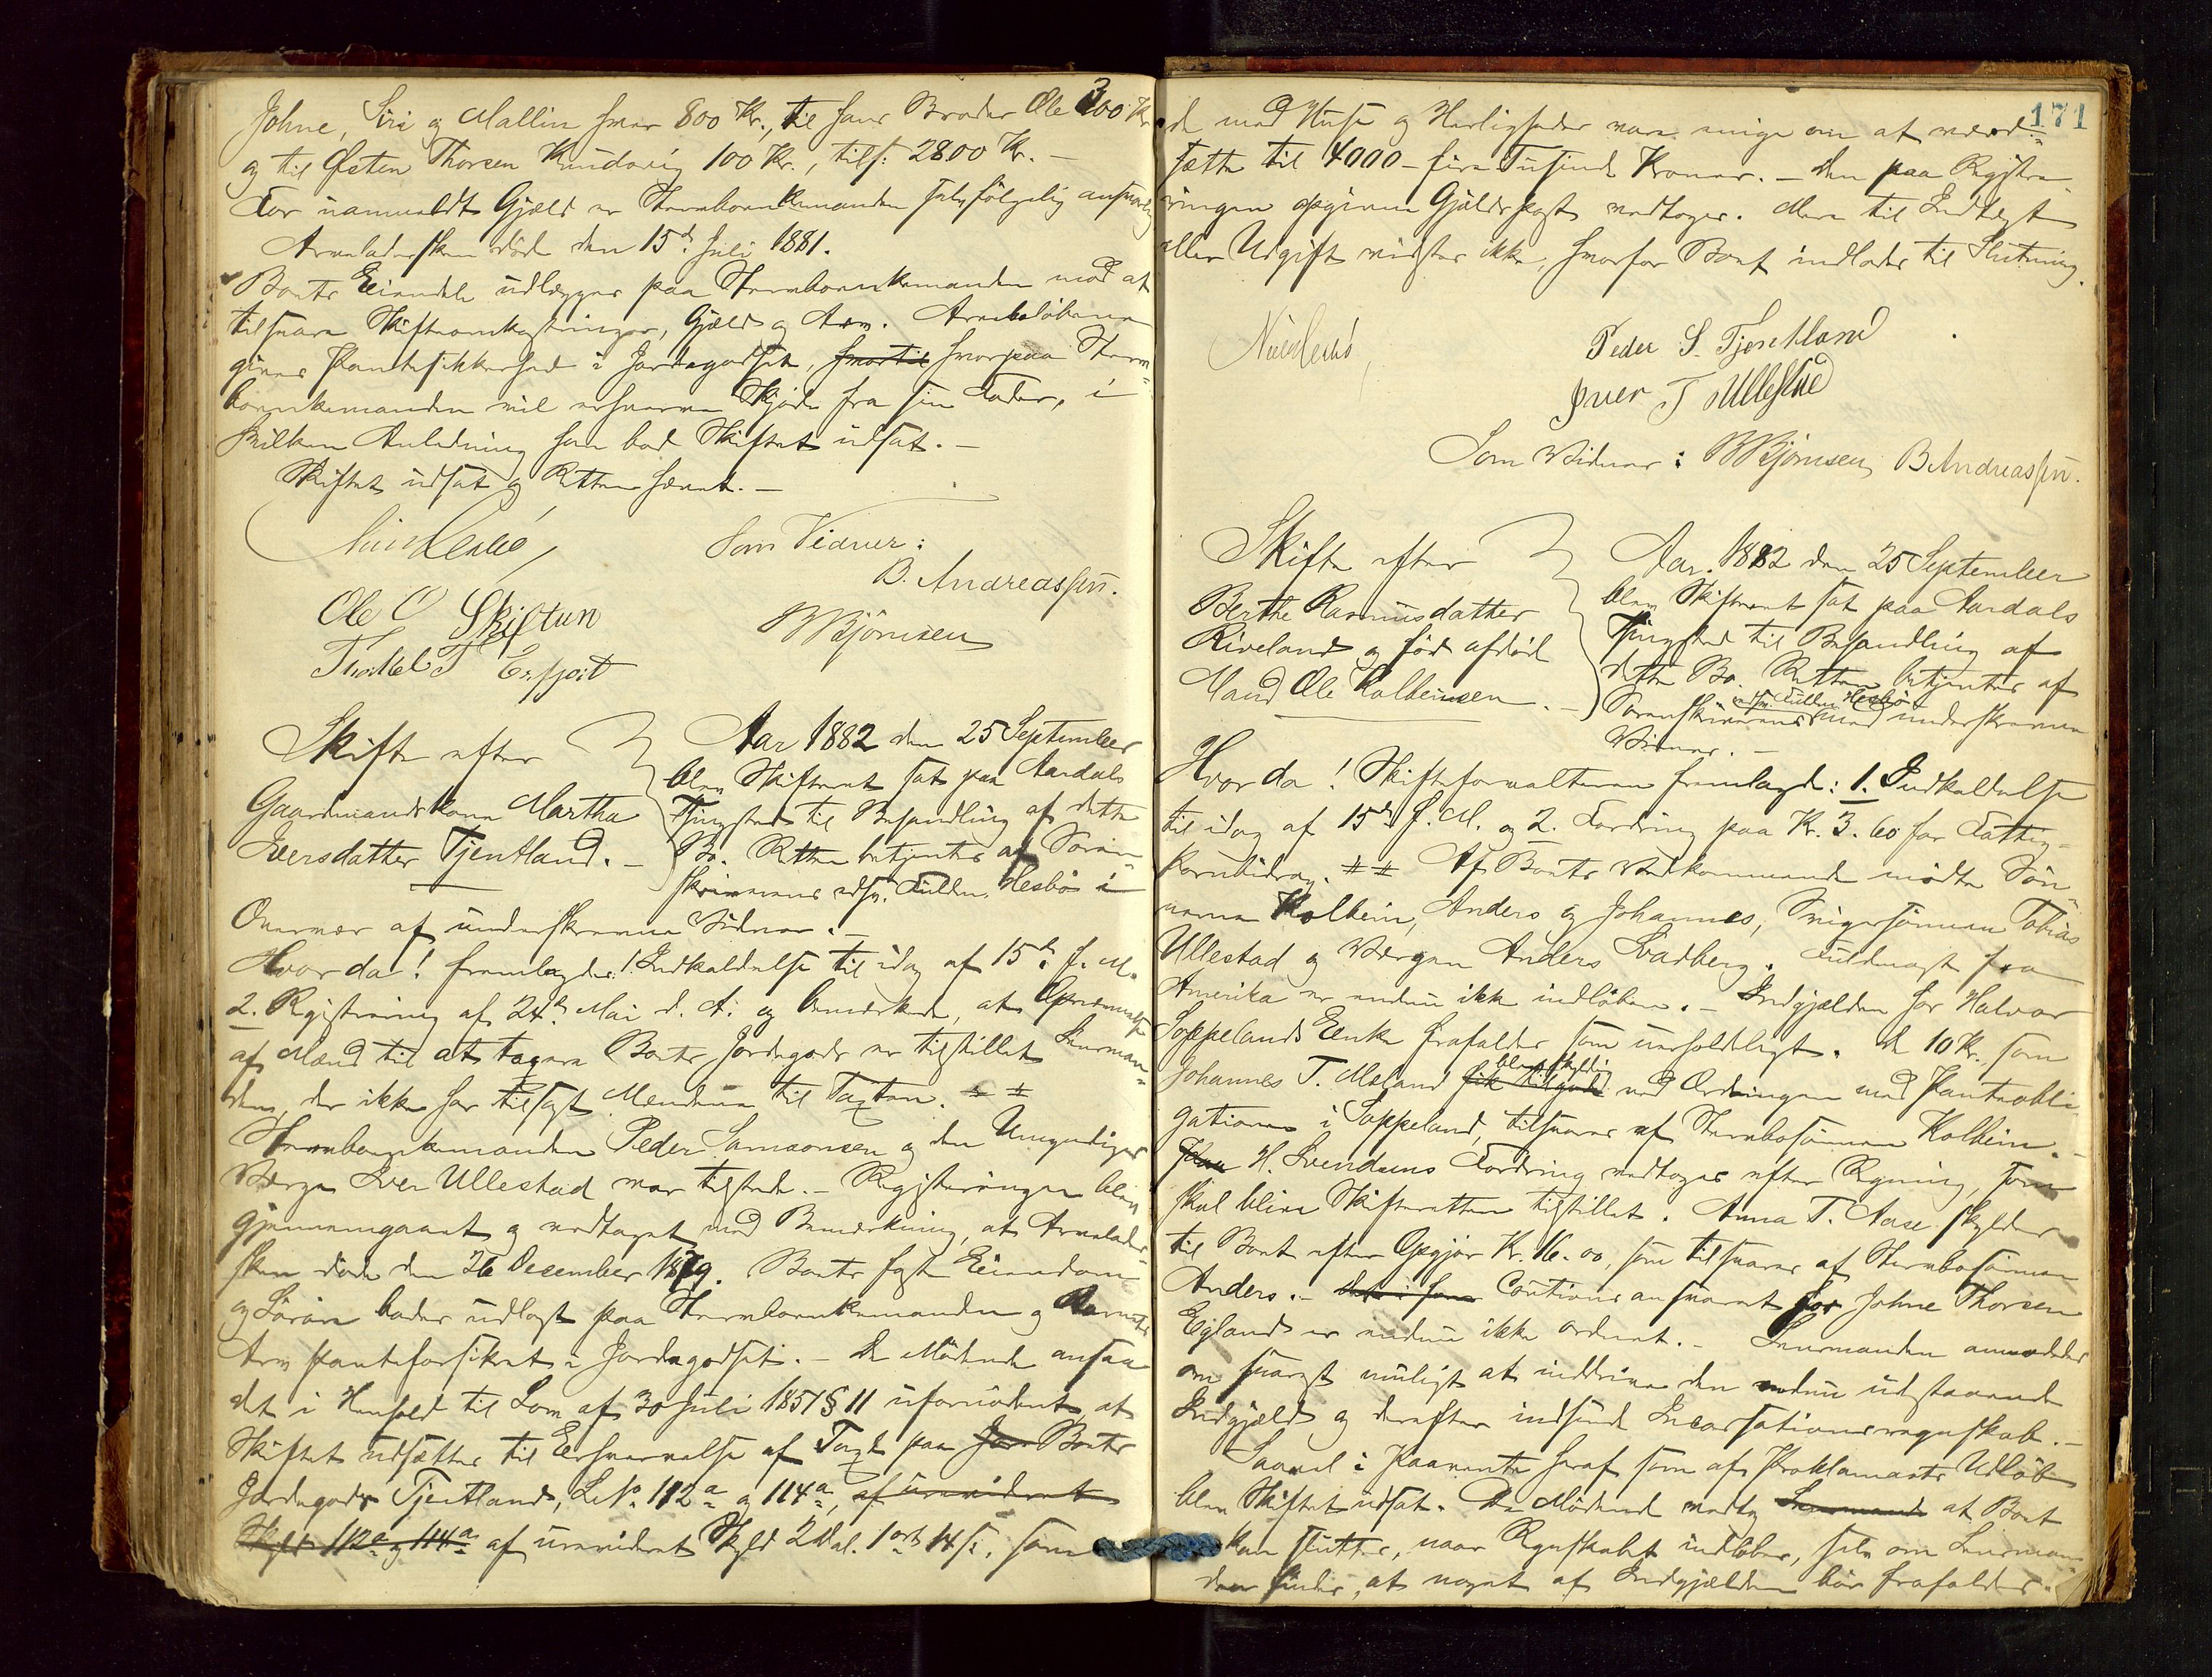 Johne, Siri og Mallin hver 800 Kr., til hans Broder Ole 300 Kr.
og til Østen Thorsen 100 Kr., tils: 2800 Kr. –
For uanmeldt Gjæld er Stervboenkemanden selvfølgelig ansvarlig
Arveladersken døde den 15de Juli 1881.
Boets Eiendele udlægges paa Stervboenkemanden mod at
tilsvare Skifteomkostninger, Gjæld og Arv. Arvebeløbene
gives Pantesikkerhed i Jordegodset, hvortil hvorpaa Sterv-
boenkemanden vil erhverve Skjøde fra sin Fader, i
hvilken Anledning han bad Skiftet udsat. –
Skiftet udsat og Retten hævet. –
Som Vidner:
B. Andreassen.
Ole O Skiftun
BBjørnsen
Thorkel T
Skifte efter
Gaardmandskone Martha
Iversdatter Tjentland. –
Aar 1882 den 25 September
blev Skifteret sat paa Aardals
Thingsted til Behandling af dette
Bo. Retten betjentes af Soren-
skriverens edsv. Fuldm. Hesbø i
Overvær af underskrevne Vidner. –
Hvorda! fremlagdes: 1. Indkaldelse til idag af 15de f. M.
2. Registrering af 24de Mai d. A. og bemærkedes, at Opnævnelse
af Mænd til at taxere Boets Jordegods er tilstillet Lensman-
den, der ikke har tilsagt Mændene til Taxten. ⵌ ⵌ
Stervboenkemanden Peder Samsonsen og den Umyndiges
Værge Iver Ullestad var tilstede. – Registreringen blev
gjennemgaaet og vedtaget med Bemærkning, at Arvelader-
sken døde den 26 December 1879. Boets faste Eiendom
og Løsøre bades udlagt paa Stervboenkemanden og Barnets
Arv panteforsikret i Jordegodset. – De Mødende ansaa
det i Henhold til Lov af 30 Juli 1851 § 11 ufornødent, at
Skiftet udsættes til Erhvervelse af Taxt paa Jor Boets
Jordegods Tjentland, L.No 112a og 114a, af urevideret
Skyld 112a og 114a af urevideret Skyld 2 Dal. 1 ort 14 s., som
171
de med Huse og Herligheder vare enige om at værd-
sætte til 4000 – fire Tusinde Kroner. – Den paa Registre-
ringen opgivne Gjældspost vedtoges. Mere til Indtægt
eller Udgift vidstes ikke, hvorfor Boet indlodes til Slutning.
Peder S. Tjentland
Iver T Ullestad
Som Vidner: BBjørnsen, B Andreassen.
Skifte efter
Berthe Rasmusdatter
Riveland og før afdød
Mand Ole Kolbeinsen. –
Aar 1882 den 25 September
blev Skifteret sat paa Aardals
Thingsted til Behandling af
dette Bo. Retten betjentes af
edsv. Fuldm. Hesbø
Sorenskriverens med underskrevne
Vidner. –
Hvorda! Skifteforvalteren fremlagde: 1. Indkaldelse
til idag af 15de f. M. og 2. Fordring paa Kr. 3.60 for Fattig-
kornbidrag. ⵌ ⵌ Af Boets Vedkommende mødte Søn-
nerne Kolbein, Anders og Johannes, Svigersønnen Tobias
Ullestad og Værgen Anders Svadberg. Fuldmagt fra
Amerika er endnu ikke indløben. – Indgjælden hos Halvor
Soppelands Enke frafaldes som uerholdeligt. De 10 Kr. som
blev skyldig
Johannes T. Meland fik tilgode ved Ordningen med Panteobli-
gationen i Soppeland, tilsvares af Stervbosønnen Kolbein. –
H. Svendsens Fordring vedtoges efter Regning, som
skal blive Skifteretten tilstillet. Anna T. Aase skylder
til Boet efter Opgjør Kr. 16.00, som tilsvares af Stervbosønnen
Anders. – Cautionsansvaret for Johne Thorsen
Egland er endnu ikke ordnet. – Lensmanden anmodedes
om snarest muligt at inddrive den endnu udstaaende
Indgjæld og derefter indsende Incassationsregnskab. –
Saavel i Paavente heraf som af Proklamaets Udløb
blev Skiftet udsat. De Mødende vedtog Lensmand at Boet
kan sluttes, naar Regnskabet indløber, selv om Lensman-
den finder, at noget af Indgjælden bør frafaldes.